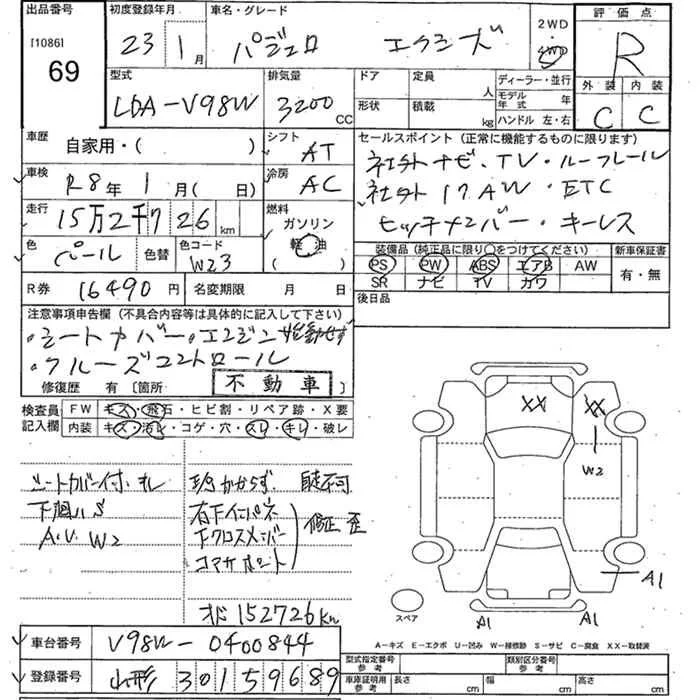 出品番号 初度登録年月 車名・グレード 2WD 評価点
[1086] 69 23 1月 パジェロ エクシーズ 4WD R
型式 排気量 ドア 定員 人 ディーラー・並行 外装 内装
LDA-V98W 3200 CC 形状 積載 kg モデル年式 年 ハンドル 左・右 C C
車歴 自家用・( ) シフト AT セールスポイント(正常に機能するものに限ります)
車検 R8年 1月( 日) 冷房 AC 社外ナビ、TV・ルーフレール
社外17AW・ETC
走行 15万2千7 26 km 燃料 ガソリン 軽油 ( ) ヒッチメンバー・キーレス
色 パール 色替 色コード W23 装備品(純正品に限り○をつけてください) 新車保証書
PS PW ABS エアB AW 有・無
SR ナビ TV カワ
R券 16490円 名変期限 月 日 後日品
注意事項申告欄(不具合内容等は具体的に記入して下さい)
・シートカバー・エンジン始動せず
・クルーズコントロール
修復歴 有(箇所 不動車 )
検査員記入欄 FW キズ・飛石・ヒビ割・リペア跡・X要
内装 キズ・汚レ・コゲ・穴・スレ・キレ・破レ
シートカバー付、オレ
下廻りS
A.V. W2
右下インパネ
下クロスメンバー
コアサポート
修正 歪
152726Km
XX XX
W2
A1
スペア A1 A1
A-キズ E-エクボ U-凹み W-補修跡 S-サビ C-腐食 XX-取替済
車台番号 V98W-0400844 型式指定番号 参考 類別区分番号 参考
登録番号 山形 301 59689 車庫証明用 参考 長さ cm 幅 cm 高さ cm